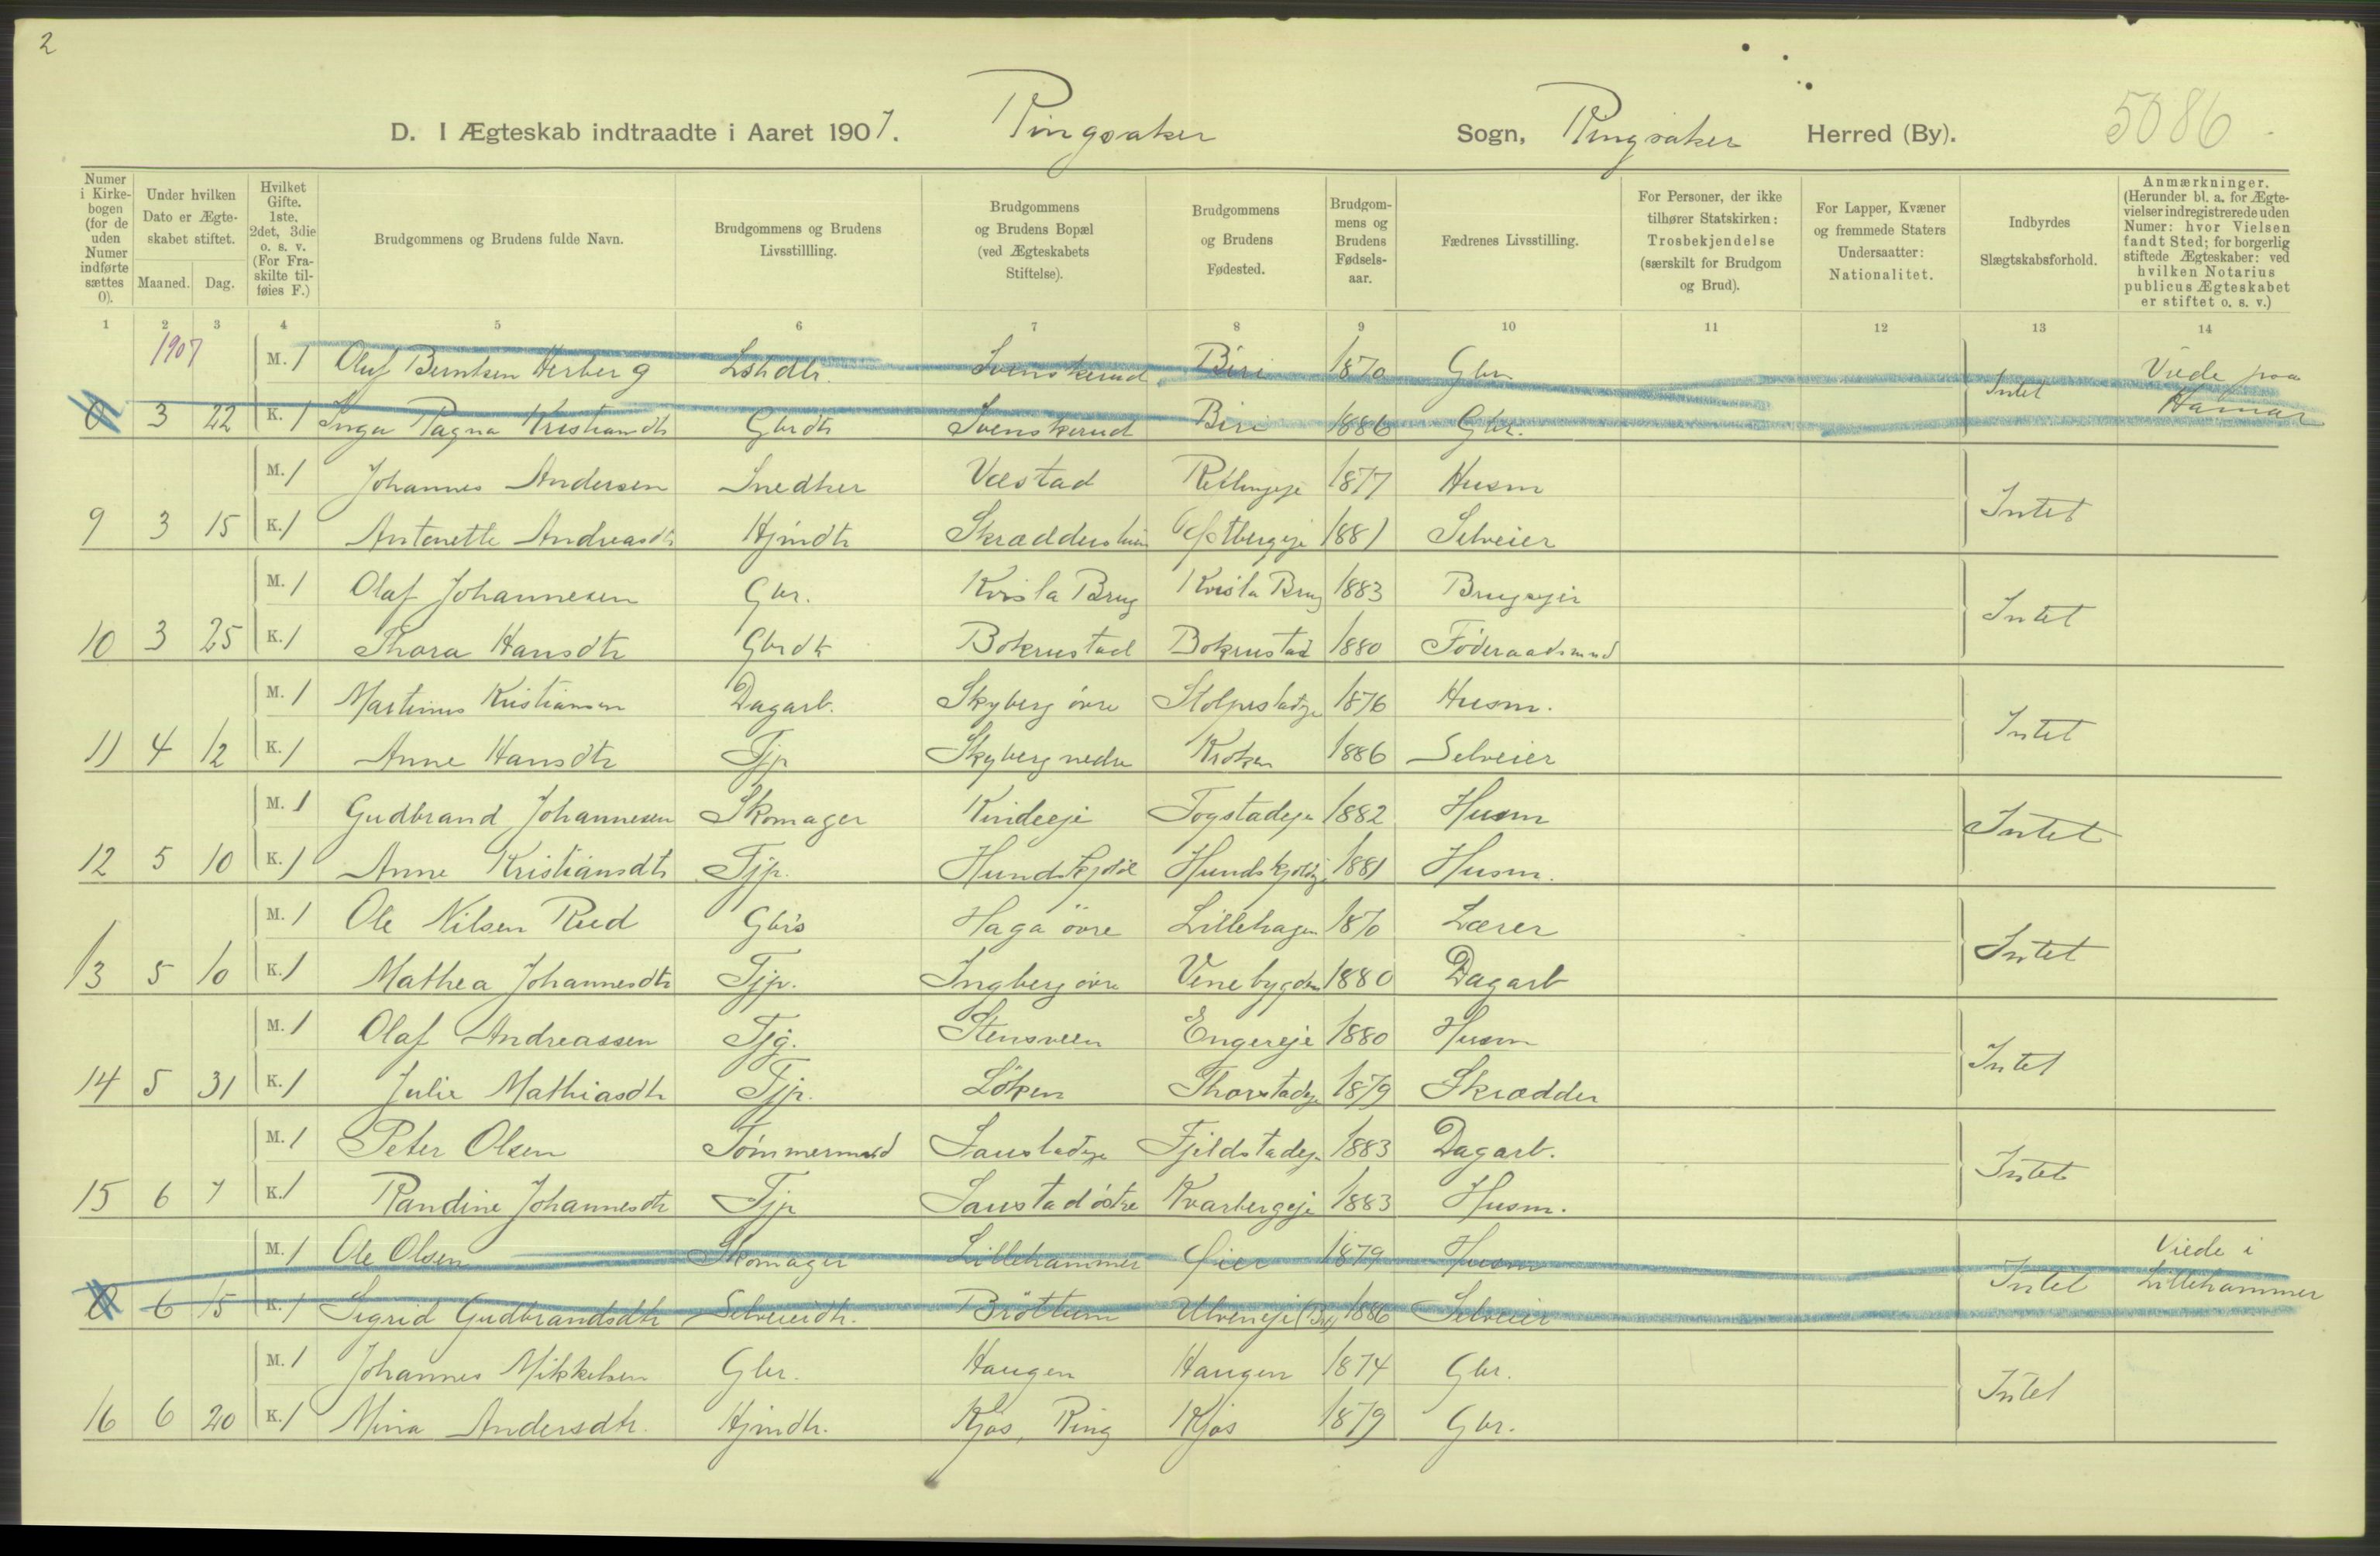 2
D. I Ægteskab indtraadte i Aaret 1907. Ringsaker Sogn, Ringsaker Herred (By). 5086
Numer i Kirkebogen (for de uden Numer indførte sættes 0).
Under hvilken Dato er Ægteskabet stiftet.
Maaned. Dag.
Hvilket Gifte. 1ste, 2det, 3die o. s. v. (For Fraskilte tilføies F.)
Brudgommens og Brudens fulde Navn.
Brudgommens og Brudens Livsstillling.
Brudgommens og Brudens Bopæl (ved Ægteskabets Stiftelse).
Brudgommens og Brudens Fødested.
Brudgommens og Brudens Fødselsaar.
Fædrenes Livsstilling.
For Personer, der ikke tilhører Statskirken: Trosbekjendelse (særskilt for Brudgom og Brud).
For Lapper, Kvæner og fremmede Staters Undersaatter: Nationalitet.
Indbyrdes Slægtskabsforhold.
Anmærkninger. (Herunder bl. a. for Ægtevielser indregistrerede uden Numer: hvor Vielsen fandt Sted; for borgerlig stiftede Ægteskaber: ved hvilken Notarius publicus Ægteskabet er stiftet o. s. v.)
1 2 3 4 5 6 7 8 9 10 11 12 13 14
1907 M. 1 Oluf Berntsen Herberg Lshdlr. Svenskerud Biri 1870 Gbr. Intet Viede paa
0 3 22 K. 1 Inga Ragna Kristiandtr Gbrdtr Svenskerud Biri 1886 Gbr. Hamar
M. 1 Johannes Andersen Snedker Væstad 1877 Husm Intet
9 3 15 K. 1 Antonette Andreasdtr Hjmdtr 1881 Selveier
M. 1 Olaf Johannesen Gbr. Kvisla Brug Kvisla Brug 1883 Brugseier Intet
10 3 25 K. 1 Thora Hansdtr Gbrdtr Bokrustad Bokrustad 1880 Föderaadsmand
M. 1 Martinus Kristiansen Dagarb. Skyberg övre Stolpestadeje 1876 Husm. Intet
11 4 12 K. 1 Anne Hansdtr Tjp Skyberg nedre Kroken 1886 Selveier
M. 1 Gudbrand Johannesen Skomager Kindeeje Fogstadeje 1882 Husm Intet
12 5 10 K. 1 Anne Kristiansdtr Tjp. Hundskjold Hundskjoldeje 1881 Husm.
M. 1 Ole Nilsen Rud Gbrs Haga övre Lillehagen 1870 Lærer Intet
13 5 10 K. 1 Mathea Johannesdtr Tjp. Ingberg övre Venebygden 1880 Dagarb
M. 1 Olaf Andreassen Tjg. Stensveen Engereje 1880 Husm Intet
14 5 31 K. 1 Julie Mathiasdtr Tjp. Löken Thorstadeje 1879 Skrædder
M. 1 Peter Olsen Tömmermand Saustadeje Fjeldstadeje 1883 Dagarb. Intet
15 6 7 K. 1 Randine Johannesdtr Tjp Saustad östre Kvarbergeje 1883 Husm.
M. 1 Ole Olsen Skomager Lillehammer Öier 1879 Husm Intet Viede i
0 6 15 K. 1 Sigrid Gudbrandsdtr Selveierdtr. Bröttum Ulveneje 1886 Selveier Lillehammer
M. 1 Johannes Mikkelsen Gbr. Haugen Haugen 1874 Gbr. Intet
16 6 20 K. 1 Mina Andersdtr. Hjmdtr. Kjos, Ring Kjos 1879 Gbr.